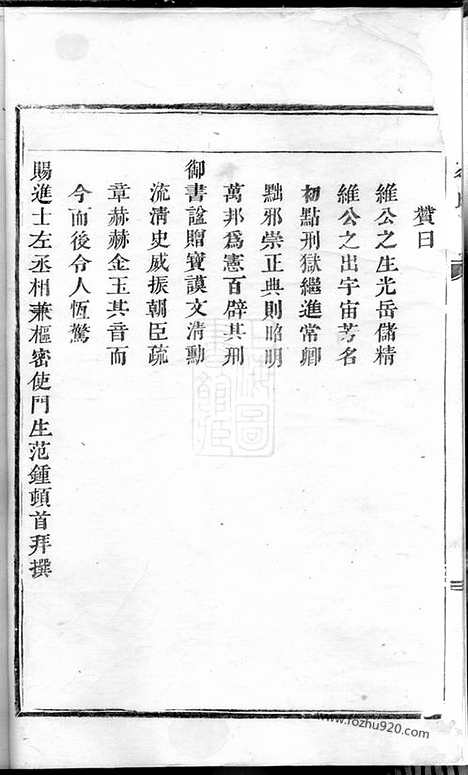 贊曰
維公之生光岳儲精
維公之出宇宙芳名
初點刑獄繼進常卿
黜邪崇正典則昭明
萬邦爲憲百辟其刑
御書諡贈寶謨文清勳
流清史威振朝臣疏
章赫赫金玉其音而
今而後令人恆驚
賜進士左丞相兼樞密使門生范鍾頓首拜撰
www.fozhu920.com